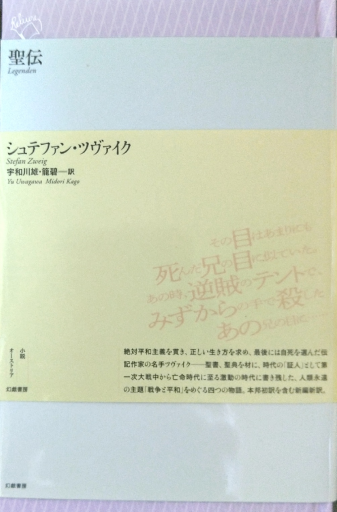 聖伝
Legenden
シュテファン・ツヴァイク
Stefan Zweig
宇和川雄・籠碧──訳
Yu Uwagawa Midori Kago
その目はあまりにも
死んだ兄の目に似ていた。
あの時、逆賊のテントで、
みずからの手で殺した
あの
小説
オーストリア
絶対平和主義を貫き、正しい生き方を求め、最後には自死を選んだ伝
記作家の名手ツヴァイク──聖書、聖典を材に、時代の「証人」として第
一次大戦中から亡命時代に至る激動の時代に書き残した、人類永遠
の主題「戦争と平和」をめぐる四つの物語。本邦初訳を含む新編新訳。
幻戯書房
幻戯書房